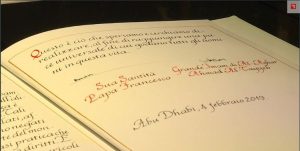 Questo è ciò che speriamo e cerchiamo di
realizzare, al fine di raggiungere una pa-
ce universale di cui godano tutti gli uomi-
ni in questa vita.
Sua Santità
Papa Francesco
Grande Imam di Al-Azhar
Ahmad Al-Tayyeb
Abu Dhabi, 4 febbraio 2019